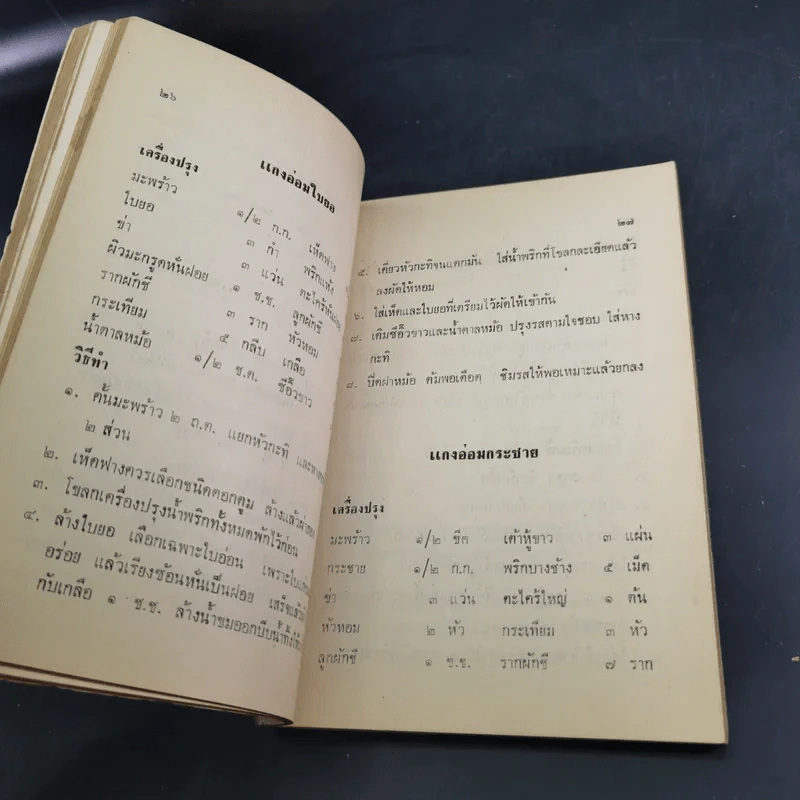 ๒๖
แกงอ่อมใบยอ
เครื่องปรุง
มะพร้าว ๑/๒ ก.ก. เห็ดฟาง
ใบยอ ๓ กำ พริกแห้ง
ข่า ๓ แว่น ตะไคร้หั่นฝอย
ผิวมะกรูดหั่นฝอย ๑ ช.ช. ลูกผักชี
รากผักชี ๓ ราก หัวหอม
กระเทียม ๕ กลีบ เกลือ
น้ำตาลหม้อ ๑/๒ ช.ต. ซีอิ๊วขาว
วิธีทำ
๑. คั้นมะพร้าว ๒ ถ.ต. แยกหัวกะทิ และหาง
๒ ส่วน
๒. เห็ดฟางควรเลือกชนิดดอกตูม ล้างแล้วผ่า
๓. โขลกเครื่องปรุงน้ำพริกทั้งหมดพักไว้ก่อน
๔. ล้างใบยอ เลือกเฉพาะใบอ่อน เพราะใบ
อร่อย แล้วเรียงซ้อนหั่นเป็นฝอย เสร็จแล้ว
กับเกลือ ๑ ช.ช. ล้างน้ำขมออกบีบน้ำทิ้งให้
๒๗
๕. เคี่ยวหัวกะทิจนแตกมัน ใส่น้ำพริกที่โขลกละเอียดแล้ว
ลงผัดให้หอม
๖. ใส่เห็ดและใบยอที่เตรียมไว้ผัดให้เข้ากัน
๗. เติมซีอิ๊วขาวและน้ำตาลหม้อ ปรุงรสตามใจชอบ ใส่หาง
กะทิ
๘. ปิดฝาหม้อ ต้มพอเดือด ชิมรสให้พอเหมาะแล้วยกลง
แกงอ่อมกระชาย
เครื่องปรุง
มะพร้าว ๑/๒ ขีด เต้าหู้ขาว ๓ แผ่น
กระชาย ๑/๒ ก.ก. พริกบางช้าง ๕ เม็ด
ข่า ๓ แว่น ตะไคร้ใหญ่ ๑ ต้น
หัวหอม ๒ หัว กระเทียม ๓ หัว
ลูกผักชี ๑ ช.ช. รากผักชี ๗ ราก